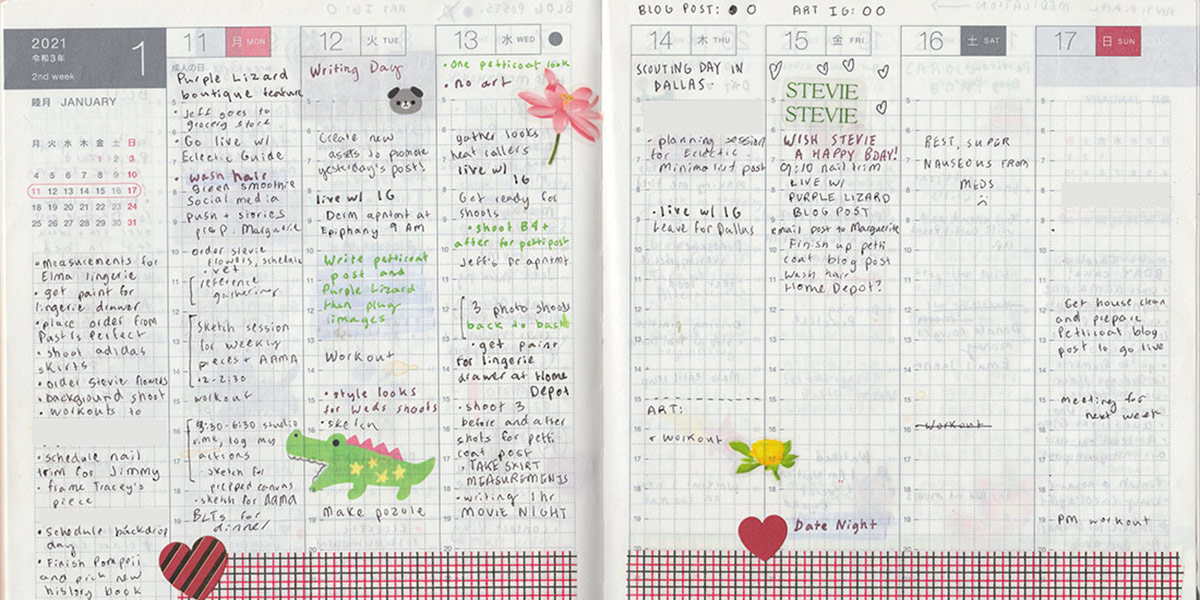 BLOG POST: ● O
ART IG: O O
2021
令和3年
2nd week
1
睦月 JANUARY
月 火 水 木 金 土 日
1 2 3
4 5 6 7 8 9 10
11 12 13 14 15 16 17
18 19 20 21 22 23 24
25 26 27 28 29 30 31
• measurements for
Elma lingerie
• get paint for
lingerie drawer
• place order from
Past is Perfect
• shoot adidas
skirts
• order Stevie flowers
• background shoot
• workouts to
• schedule nail
trim for Jimmy
• frame Tracey's
piece
• Schedule backdrop
day
• Finish Pompeii
and pick new
history book
11 月 MON
成人の日
Purple Lizard
boutique feature
• Jeff goes to
grocery store
• Go live w/
Eclectic Guide
• wash hair
Green smoothie
Social media
push + stories
prep. Marguerite
order Stevie
flowers, schedule
• vet
reference
gathering
Sketch session
for weekly
pieces + AAMA
• 12-2:30
workout
3:30-6:30 studio
time, log my
actions
• sketch for
prepped canvas
• sketch for AAMA
BLTs for
dinner
12 火 TUE
Writing Day
Create new
assets to promote
yesterday's posts
live w/ IG
Derm apntmt at
Epiphany 9 AM
Write petticoat
post and
Purple Lizard
then plug
images
Workout
• style looks
for Weds shoots
• sketch
make pozole
13 水 WED
• one petticoat look
• no art
gather looks
heat rollers
live w/
IG
Get ready for
shoots
• shoot B4 +
after for petti post
Jeff's PC apntmt
3 photo shoots
back to back
• get paint
for lingerie
drawer at Home
Depot
• shoot 3
before and after
shots for petti
coat post
• TAKE SKIRT
MEASUREMENTS
• writing 1hr
MOVIE NIGHT
14 木 THU
SCOUTING DAY IN
DALLAS
• planning session
for Eclectic
Minimalist post
• live w/ IG
Leave for Dallas
ART:
• workout
15 金 FRI
STEVIE
STEVIE
WISH STEVIE
A HAPPY BDAY!
9:10 nail trim
LIVE W/
PURPLE LIZARD
BLOG POST
email post to Marguerite
Finish up petti
coat blog post
Wash hair
Home Depot?
Date Night
16 土 SAT
REST, SUPER
NAUSEOUS FROM
MEDS
Workout
17 日 SUN
Get house clean
and prepare
Petticoat blog
post to go live
meeting for
next week
PM workout